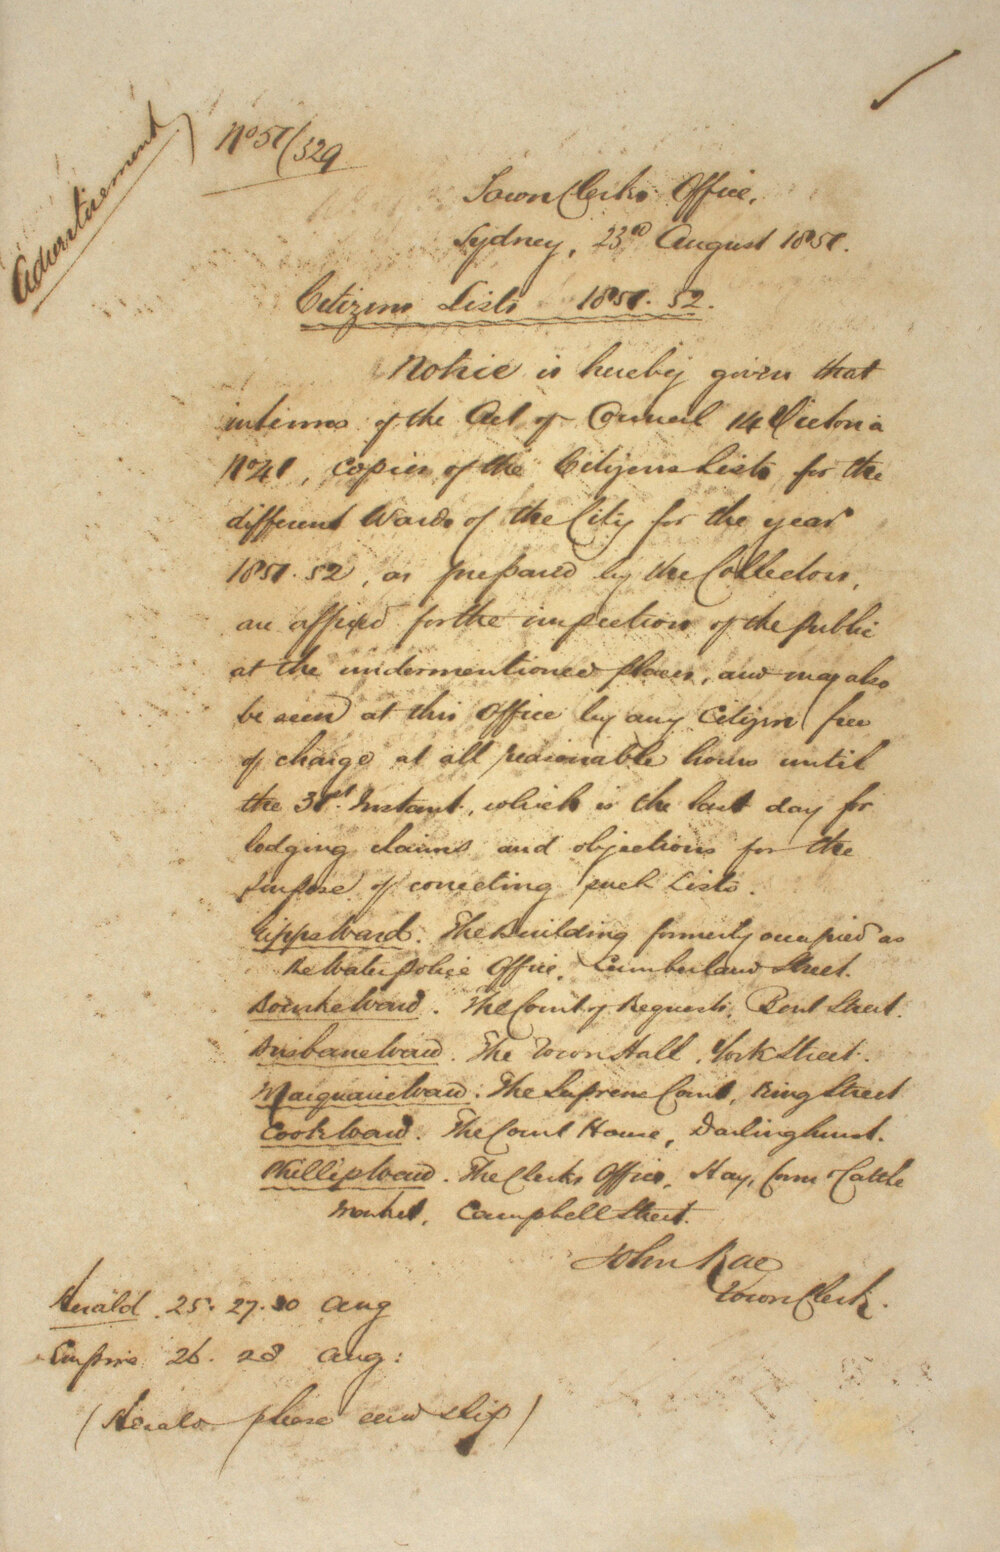 Advertisement)
No 51/329
Town Clerks Office,
Sydney, 23rd August 1851.
Citizens Lists 1851.52.
Notice is hereby given that
in terms of the Act of Council 14 Victoria
No 41, copies of the Citizens Lists for the
different Wards of the City for the year
1851.52, as prepared by the Collectors,
are affixed for the inspection of the public
at the undermentioned places, and may also
be seen at this Office by any Citizen free
of charge at all reasonable hours until
the 31st Instant, which is the last day for
lodging claims and objections for the
purpose of correcting such Lists.
Gipps Ward. The Building formerly occupied as
the Water Police Office, Cumberland Street.
Bourke Ward. The Court of Requests, Bent Street.
Brisbane Ward. The Town Hall, York Street.
Macquarie Ward. The Supreme Court, King Street
Cook Ward. The Court House, Darlinghurst.
Phillip Ward. The Clerks Office, Hay, Corn & Cattle
Market, Campbell Street.
John Rae
Town Clerk.
Herald 25. 27. 30 Aug
Empire 26. 28 Aug:
(Herald please send slip)